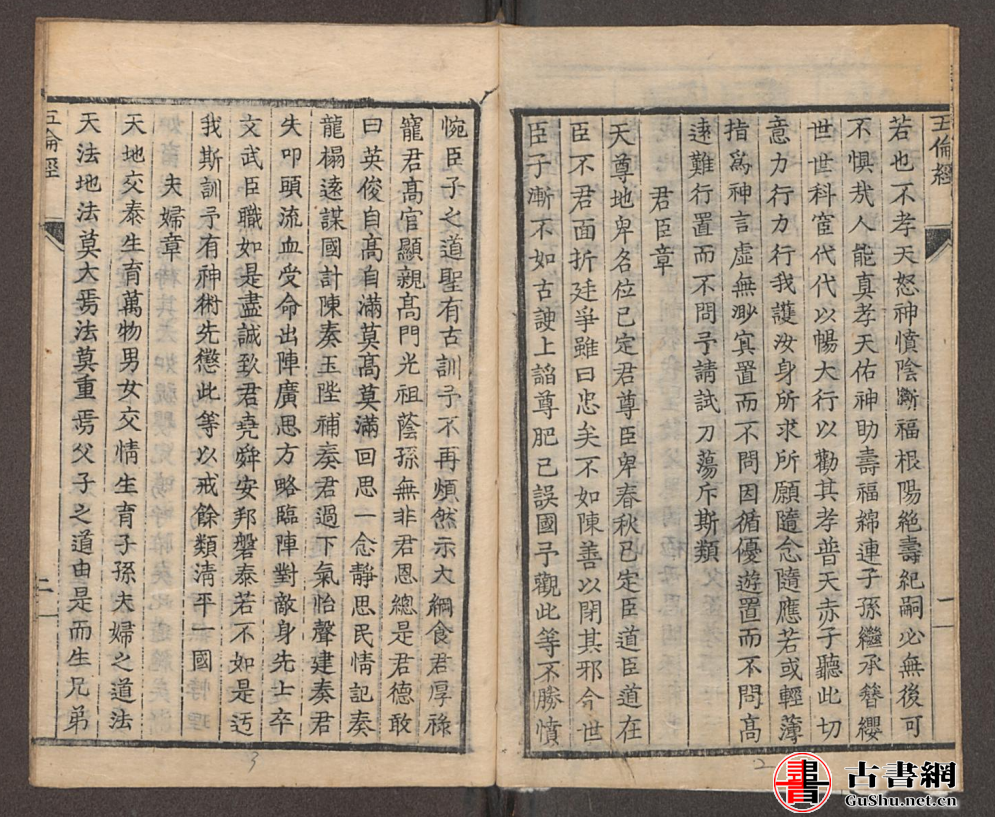 五倫經
若也不孝天怒神憤陰斷福根陽絶壽紀嗣必無後可
不惧㢤人能真孝天佑神助壽福綿連子孫繼承簪纓
世世科宦代代以暢大行以勸其孝普天赤子聽此切
意力行力行我護汝身所求所願隨念隨應若或輕薄
指爲神言虛無渺㝠置而不問因循優遊置而不問高
遠難行置而不問予請試刀蕩斥斯類
君臣章
天尊地卑名位已定君尊臣卑春秋已定臣道臣道在
臣不君面折廷爭雖曰忠矣不如陳善以閉其邪今世
臣子漸不如古諛上謟尊肥己誤國予觀此等不勝憤
惋臣子之道聖有古訓予不再煩然示大綱食君厚祿
寵君高官顯親高門光祖蔭孫無非君恩總是君德敢
曰英俊自高自滿莫高莫滿回思一念靜思民情記奏
龍榻遠謀國計陳奏玉陛補奏君過下氣怡聲建奏君
失叩頭流血受命出陣廣思方略臨陣對敵身先士卒
文武臣職如是盡誠致君堯舜安邦磐泰若不如是迃
我斯訓予有神術先懲此等以戒餘類淸平一國
夫婦章
天地交泰生育萬物男女交情生育子孫夫婦之道法
天法地法莫大焉法莫重焉父子之道由是而生兄弟
五倫經
二
3
2
書
古書網
GuShu.net.cn